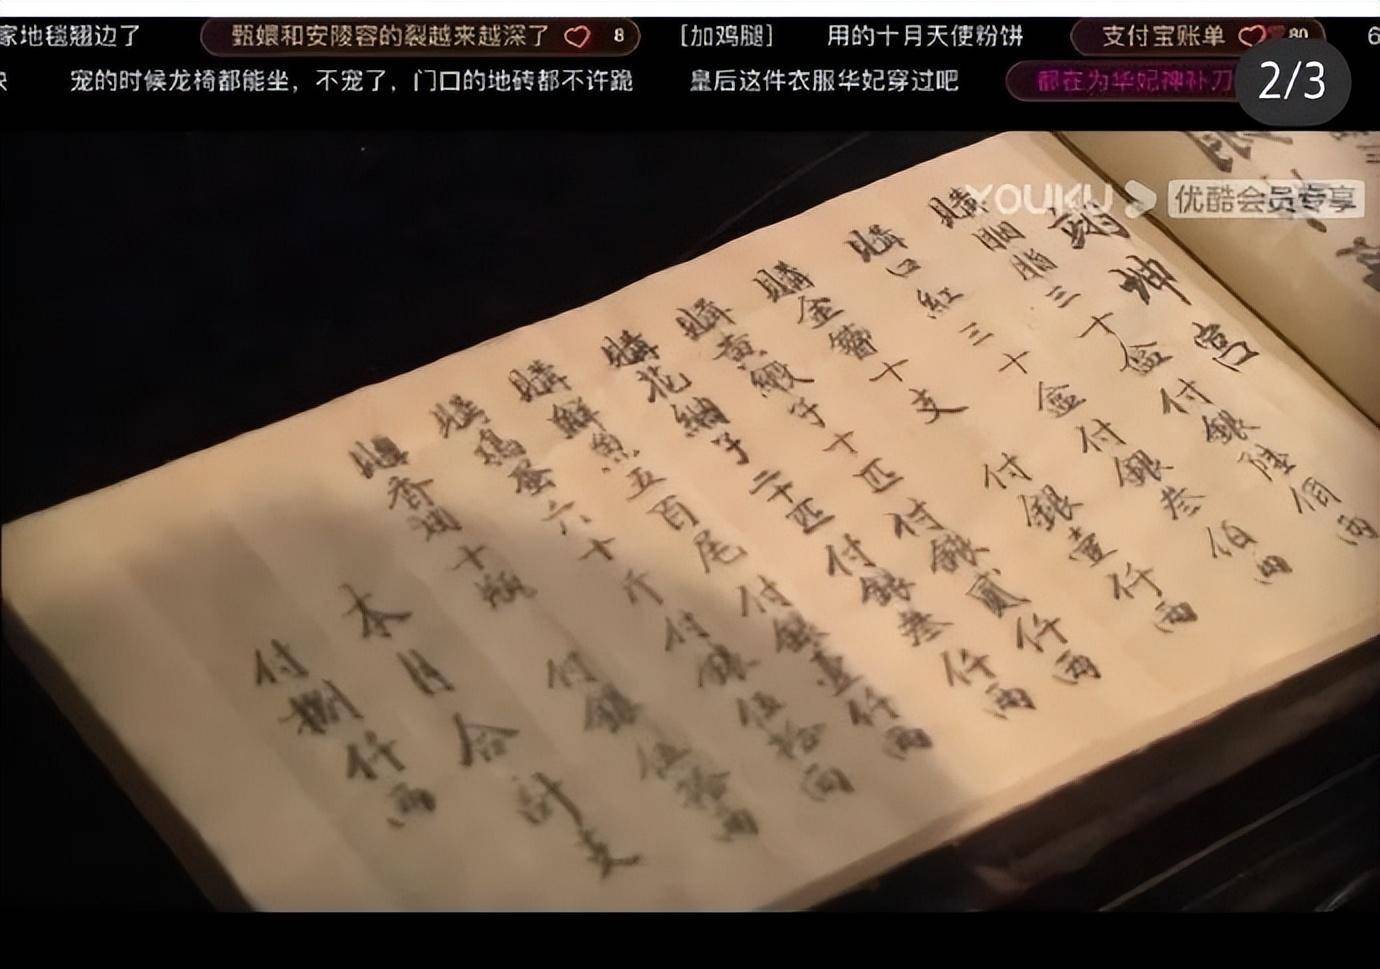 家地毯翘边了 甄嬛和安陵容的裂越来越深了 8 [加鸡腿] 用的十月天使粉饼 支付宝账单 80
宠的时候龙椅都能坐，不宠了，门口的地砖都不许跪 皇后这件衣服华妃穿过吧 都在为华妃神补刀
2/3
YOUKU 优酷会员专享
翊坤宮
購胭脂三十盒付銀陸佰兩
購口紅三十盒付銀叁佰兩
購金簪十支付銀壹仟兩
購黃緞子十匹付銀貳仟兩
購花綢子二十匹付銀叁仟兩
購鮮魚五百尾付銀壹仟兩
購鷄蛋六十斤付銀伍拾兩
購香油十瓶付銀伍拾兩
本月合計支
付捌仟兩